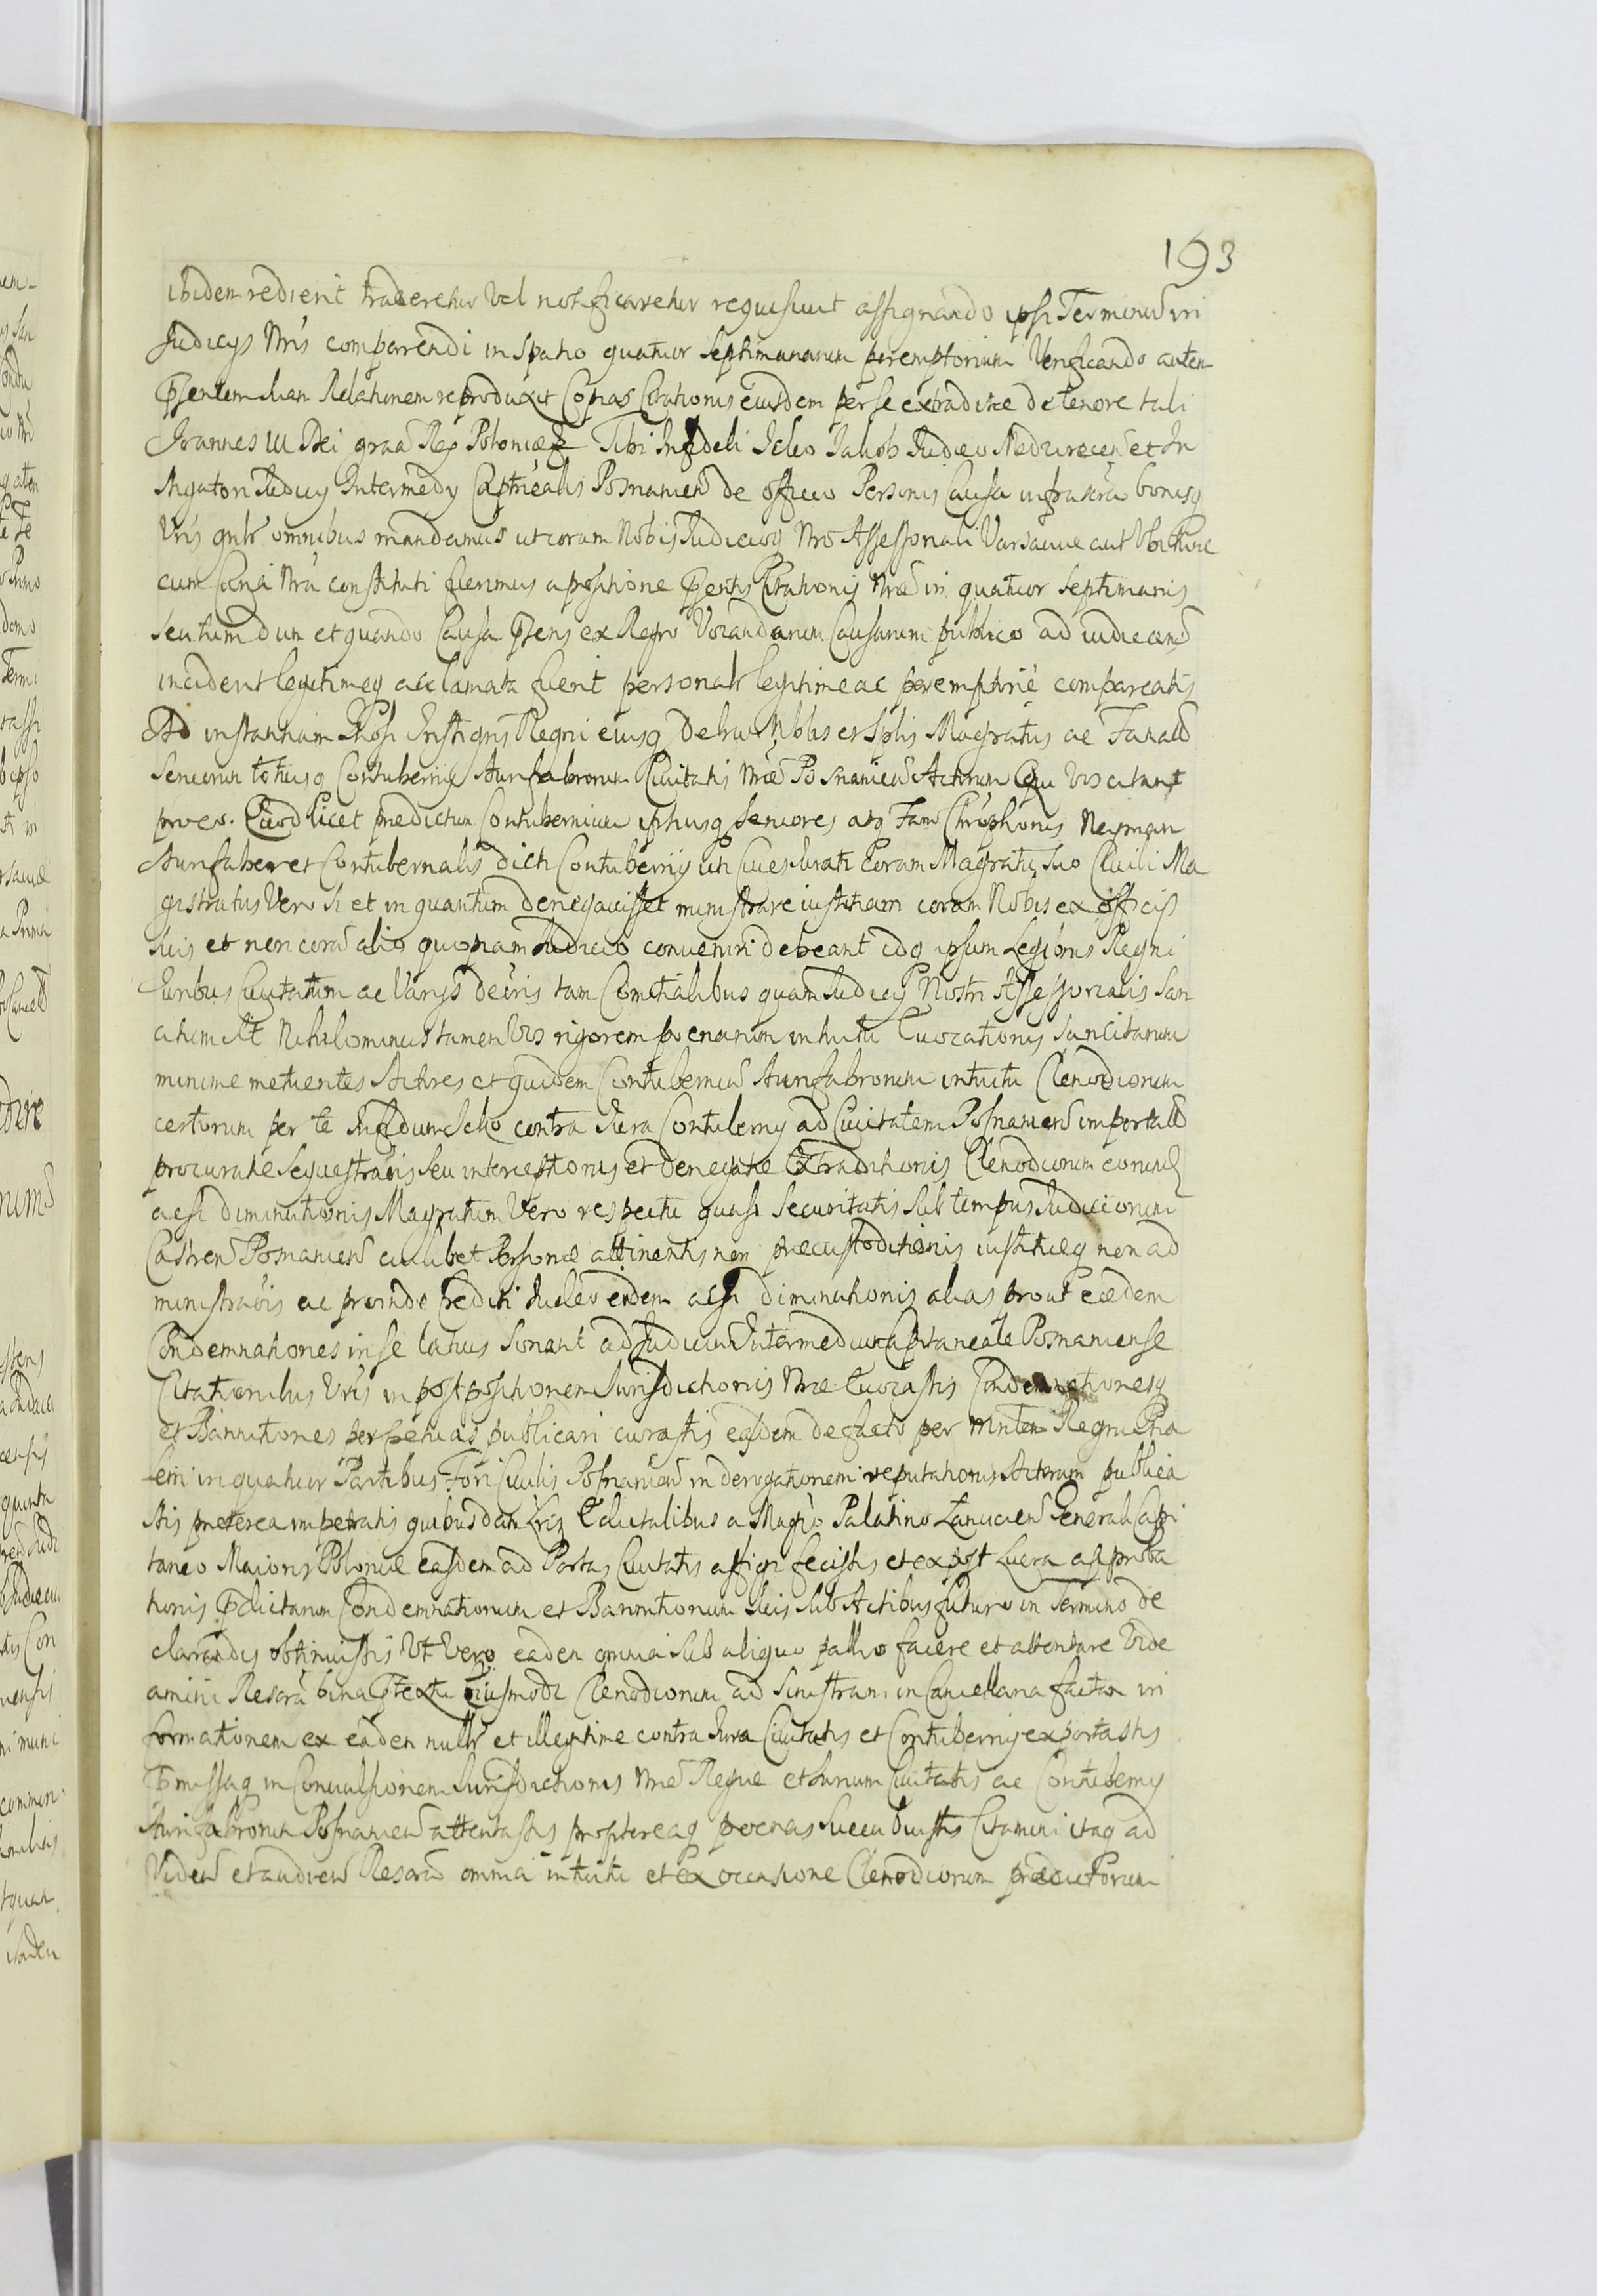 193
ibidem redierit traderetur vel notificaretur requisivit assignando ipsi Terminum in
Judicijs Nris comparendi in spatio quatuor septimanarum peremptorium Verificando autem
Psentem suam Relationem reproduxit Copias Citationis eiusdem per se extraditae de tenore tali
Joannes III Dei graa Rex Poloniae Tibi Infideli Icko Jakob Judaeo et In
stigatori Judicij Intermedij Captnealis Posnanien de officio Personis Causa infrascra bonisq
Vris gnlr omnibus mandamus ut coram Nobis Judicioq Nro Assessoriali Varsaviae aut ubi tunc
cum Curia Nra constituti fuerimus a positione Psentis Citationis Nrae in quatuor septimanis
seu tum dum et quando Causa Psens ex Regro Vocandarum Causarum publico ad iudicand
inciderit legitimeq acclamata fuerit personalr legitime ac peremptorie compareatis
Ad instantiam Instigris Regni eiusq Delris Nobis et Splis Magratus ac Famat
Seniorum totiusq Contubernij Aurifabrorum Civitatis Nrae Posnanien Actorum Qui vos citant
pro eo. Quod licet praedictum Contubernium ipsiusq seniores atq Fam Chrophorus Neyman
Aurifaber et Contubernalis dicti Contubernij uti Cives iurati Coram Magratu suo Civili Ma
gistratus Vero si et in quantum denegavisset ministrare iustitiam coram Nobis ex officijs
suis et non coram alio quopiam Judicio conveniri debeant idq ipsum Legibus Regni
Juribus Civitatum ac Varijs decris tam Comitialibus quam Judicij Nostri Assessorialis San
citum sit Nihilominus tamen Vos rigorem poenarum intuitu Evocationis sancitarum
minime metuentes Actores et quidem Contubernium Aurifabrorum intuitu Clenodiorum
certorum per te Infidum Icko contra Jura Contubernij ad Civitatem Posnanien importat
procuratae Sequestraonis seu interceptionis et denegatae Extraditionis Clenodiorum eorund
acsi diminutionis Magratum Vero respectu quasi securitatis sub tempus Judiciorum
Castren Posnanien cuilibet Personae attinentis non praecustoditionis iustitiaeq non ad
ministraonis ac proinde Crediti Judaeo eidem acsi diminutionis alias prout eaedem
Condemnationes in se latius sonant ad Judicium Intermedium Capitaneale Posnaniense
Citationibus Vris in postpositionem Jurisdictionis Nrae Evocastis Condemnationesq
et Bannitiones perpetuas publicari curastis easdem de facto per Mntem Regni Gna
lem in quatuor Partibus Fori Civilis Posnanien in derogationem reputationis Actorum publica
stis praeterea impetratis quibusdam Lris Edictalibus a Magco Palatino Lanucien Generali Capi
taneo Maioris Poloniae easdem ad Portas Civitatis affigi fecistis et ex post Lucra approba
tionis Pdictarum Condemnationum et Bannitionum suis sub Actibus futuro in Termino de
clarandis obtinuistis Ut Vero eadem omnia sub aliquo pallio facere et attentare vide
amini Rescra bina Ptextu eiusmodi Clenodiorum ad sinistram in Cancellaria factam in
formationem ex eadem nullr et illegitime contra Jura Civitatis et Contubernij exportastis
Pmissaq in Convulsionem Jurisdictionis Nrae Regiae et Jurium Civitatis ac Contubernij
Aurifabrorum Posnanien attentastis proptereaq poenas succubuistis Citamini itaq ad
Viden et audien Rescra omnia intuitu et ex occasione Clenodiorum praedictorum